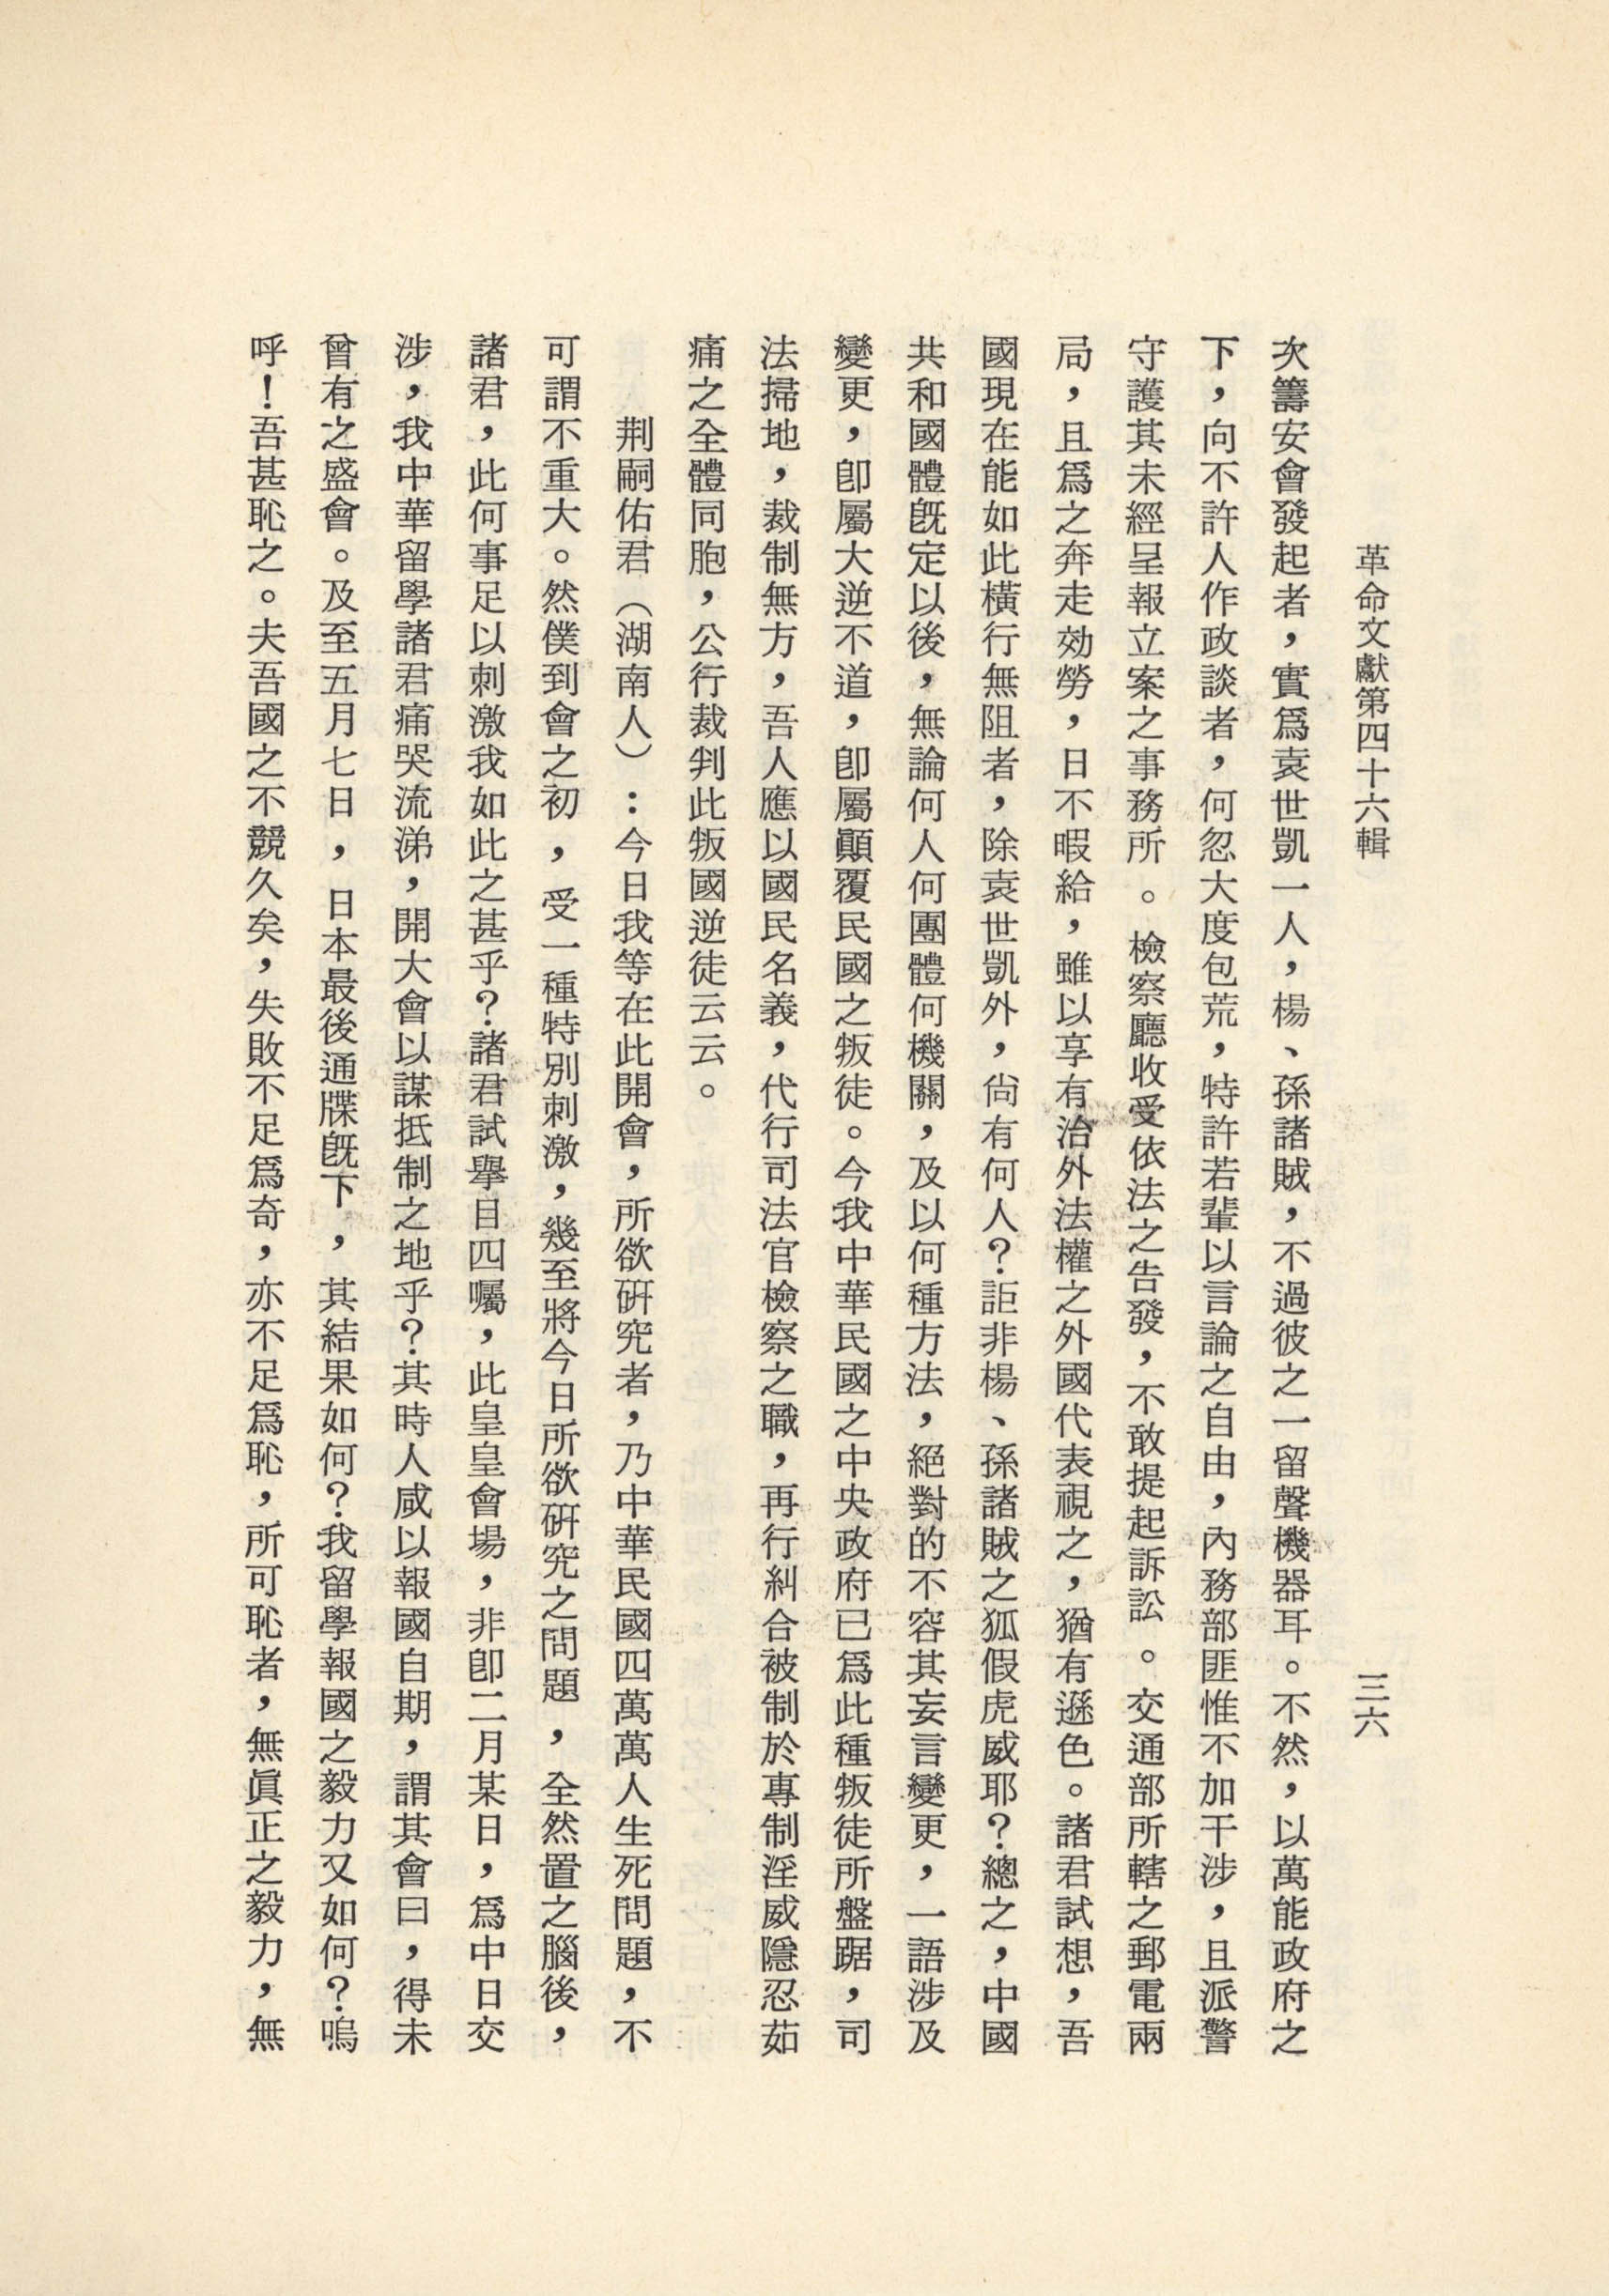 革命文獻第四十六輯
三六
次籌安會發起者，實爲袁世凱一人，楊、孫諸賊，不過彼之一留聲機器耳。不然，以萬能政府之
下，向不許人作政談者，何忽大度包荒，特許若輩以言論之自由，內務部匪惟不加干涉，且派警
守護其未經呈報立案之事務所。檢察廳收受依法之告發，不敢提起訴訟。交通部所轄之郵電兩
局，且爲之奔走効勞，日不暇給，雖以享有治外法權之外國代表視之，猶有遜色。諸君試想，吾
國現在能如此橫行無阻者，除袁世凱外，尙有何人？詎非楊、孫諸賊之狐假虎威耶？總之，中國
共和國體旣定以後，無論何人何團體何機關，及以何種方法，絕對的不容其妄言變更，一語涉及
變更，卽屬大逆不道，卽屬顚覆民國之叛徒。今我中華民國之中央政府已爲此種叛徒所盤踞，司
法掃地，裁制無方，吾人應以國民名義，代行司法官檢察之職，再行糾合被制於專制淫威隱忍茹
痛之全體同胞，公行裁判此叛國逆徒云云。
荆嗣佑君（湖南人）：今日我等在此開會，所欲硏究者，乃中華民國四萬萬人生死問題，不
可謂不重大。然僕到會之初，受一種特別刺激，幾至將今日所欲硏究之問題，全然置之腦後，
諸君，此何事足以刺激我如此之甚乎？諸君試擧目四囑，此皇皇會場，非卽二月某日，爲中日交
涉，我中華留學諸君痛哭流涕，開大會以謀抵制之地乎？其時人咸以報國自期，謂其會曰，得未
曾有之盛會。及至五月七日，日本最後通牒旣下，其結果如何？我留學報國之毅力又如何？嗚
呼！吾甚恥之。夫吾國之不競久矣，失敗不足爲奇，亦不足爲恥，所可恥者，無眞正之毅力，無